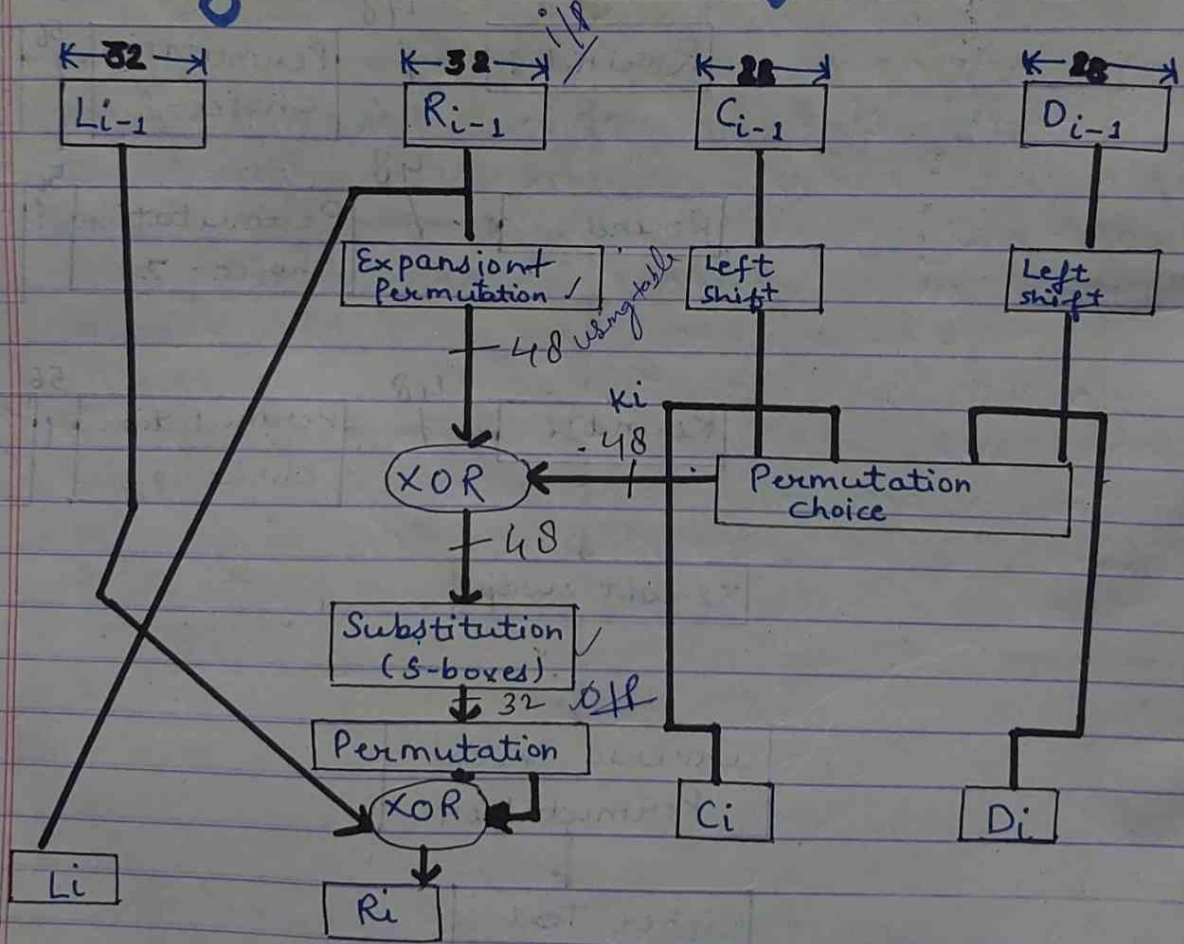 i/p
32
32
28
28
Li-1
Ri-1
Ci-1
Di-1
Expansiont
Permutation ✓
using table
Left
shift
Left
shift
48
Ki
48
XOR
Permutation
choice
48
Substitution ✓
(S-boxes)
32 O/P
Permutation
XOR
Ci
Di
Li
Ri